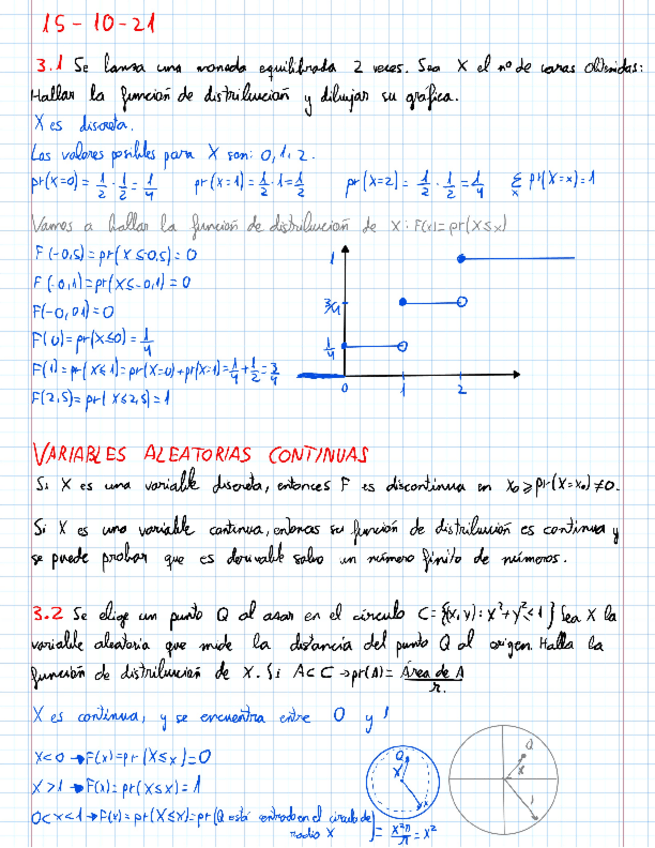 15-10-21
3.1 Se lanza una moneda equilibrada 2 veces. Sea X el nº de caras obtenidas:
Hallar la función de distribución y dibujar su gráfica.
X es discreta.
Los valores posibles para X son: 0, 1, 2.
pr(X=0) = 1/2 · 1/2 = 1/4 pr(X=1) = 1/2 · 1 = 1/2 pr(X=2) = 1/2 · 1/2 = 1/4 Σx pr(X=x) = 1
Vamos a hallar la función de distribución de X: F(x)=pr(X≤x)
F(-0,5) = pr(X≤-0,5) = 0
F(-0,1) = pr(X≤-0,1) = 0
F(-0,01) = 0
F(0) = pr(X≤0) = 1/4
F(1) = pr(X≤1) = pr(X=0) + pr(X=1) = 1/4 + 1/2 = 3/4
F(2,5) = pr(X≤2,5) = 1
1
3/4
1/4
0 1 2
VARIABLES ALEATORIAS CONTINUAS
Si X es una variable discreta, entonces F es discontinua en x₀ ⩾ pr(X=x₀) ≠ 0.
Si X es una variable continua, entonces su función de distribución es continua y
se puede probar que es derivable salvo un número finito de números.
3.2 Se elige un punto Q al azar en el círculo C={(x,y): x²+y²<1} Sea X la
variable aleatoria que mide la distancia del punto Q al origen. Halla la
función de distribución de X. Si A⊂C → pr(A) = Área de A / π.
X es continua, y se encuentra entre 0 y 1
X<0 → F(x)=pr(X≤x)=0
X>1 → F(x)=pr(X≤x)=1
0<x<1 → F(x)=pr(X≤x)=pr(Q está centrado en el círculo de
radio X) = x²π/π = x²
Q
X
Q
X
1